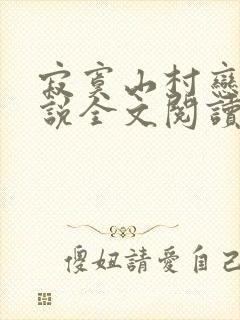 寂寞山村戀
說全文閱讀
傻妞請愛自己